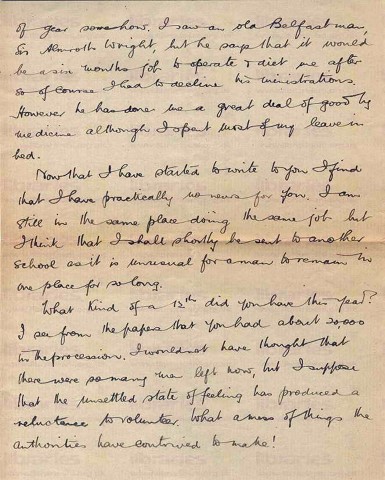 of gear somehow. I saw an old Belfast man,
Sir Almroth Wright, but he says that it would
be a six months job to operate & diet me after
so of course I had to decline his ministrations.
However he has done me a great deal of good by
medicine although I spent most of my leave in
bed.
Now that I have started to write to you I find
that I have practically no news for you. I am
still in the same place doing the same job but
I think that I shall shortly be sent to another
school as it is unusual for a man to remain in
one place for so long.
What kind of a 12th did you have this year?
I see from the papers that you had about 20,000
in the procession. I would not have thought that
there were so many men left now, but I suppose
that the unsettled state of feeling has produced a
reluctance to volunteer. What a mess of things the
authorities have contrived to make!